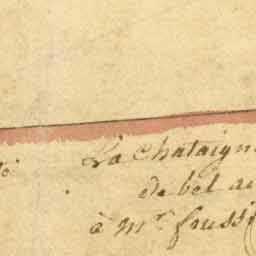 La Chataign
de bel au
à Mr. foussi